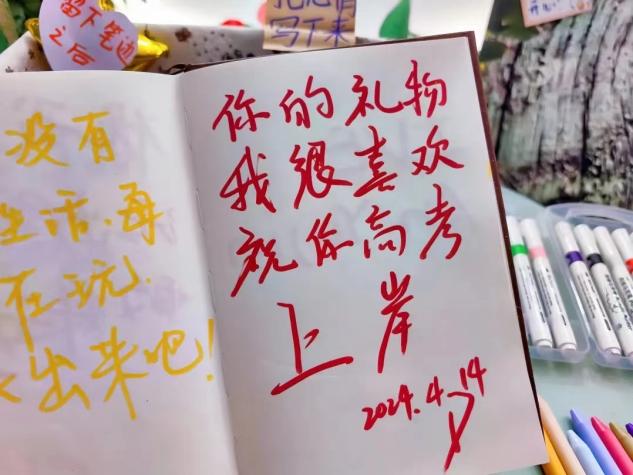 留下笔迹
之后
写下来
没有
生活.再
在玩.
出来吧!
你的礼物
我很喜欢
祝你高考
上岸
2024.4.14